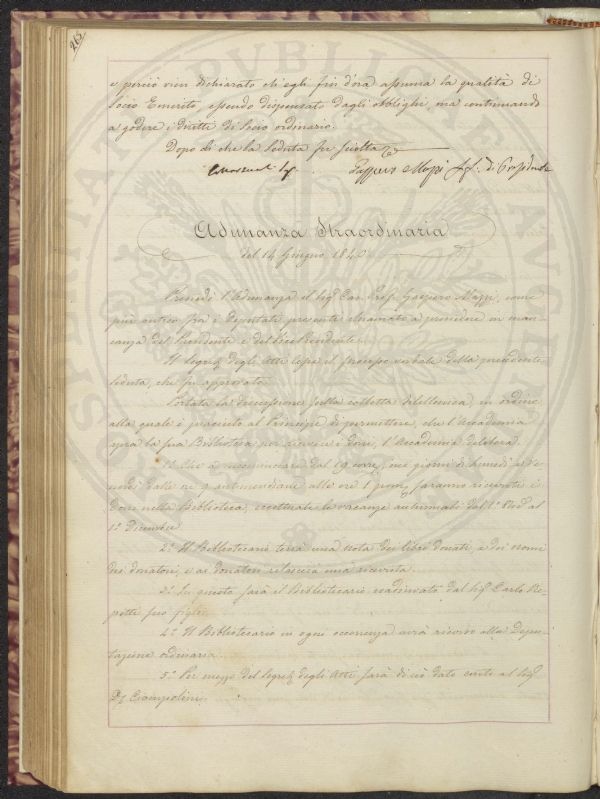 262
e perciò vien dichiarato ch'egli fin d'ora assuma la qualità di
Socio Emerito, essendo dispensato dagli obblighi, ma continuando
a godere i diritti di Socio ordinario.
Dopo di che la seduta fu sciolta
Gaspero Mazzi
Adunanza Straordinaria
del 14 Giugno 1840
Presiede l'Adunanza il Sig. Cav. Prof. Gaspero Mazzi, come
più antico fra i Deputati presenti chiamato a presiedere in man-
canza del Presidente e del Vice Presidente.
Il Segret. degli Atti legge il processo verbale della precedente
seduta, che fu approvato.
Portata la discussione sulla colletta in ordine
alla quale è piaciuto al Principe di permettere, che l'Accademia
apra la sua Biblioteca per ricevere i doni, l'Accademia delibera.
1.° Che a incominciare dal 19 corre, nei giorni di lunedì e
dalle ore 9 antimeridiane alle ore 1 pom. saranno ricevuti i
doni nella Biblioteca, eccettuate le vacanze autunnali dal 1.° al
1.° Dicembre
2.° Il Bibliotecario terrà una nota dei libri donati, e dei nomi
dei donatori, e ai donatori rilascerà una ricevuta.
3.° In questo sarà il Bibliotecario coadiuvato dal Sig. Carlo
suo figlio
4.° Il Bibliotecario in ogni occorrenza avrà ricorso alla Depu-
tazione ordinaria.
5.° Per mezzo del Segret. degli Atti sarà di ciò dato conto al Sig.
Ciampolini.